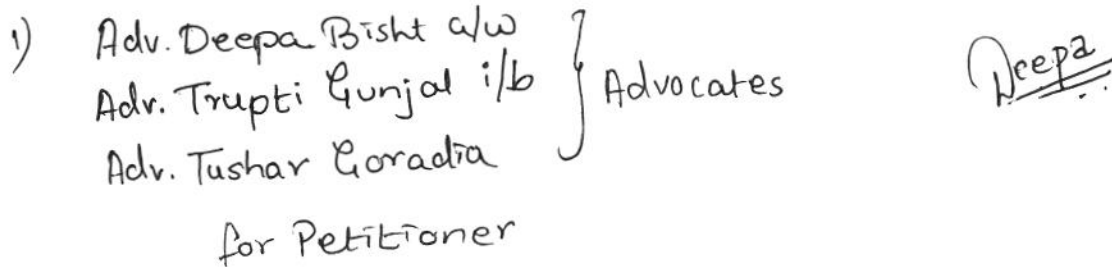 1) Adv. Deepa Bisht a/w
Adv. Trupti Gunjal i/b
Adv. Tushar Goradia
} Advocates
for Petitioner
Deepa